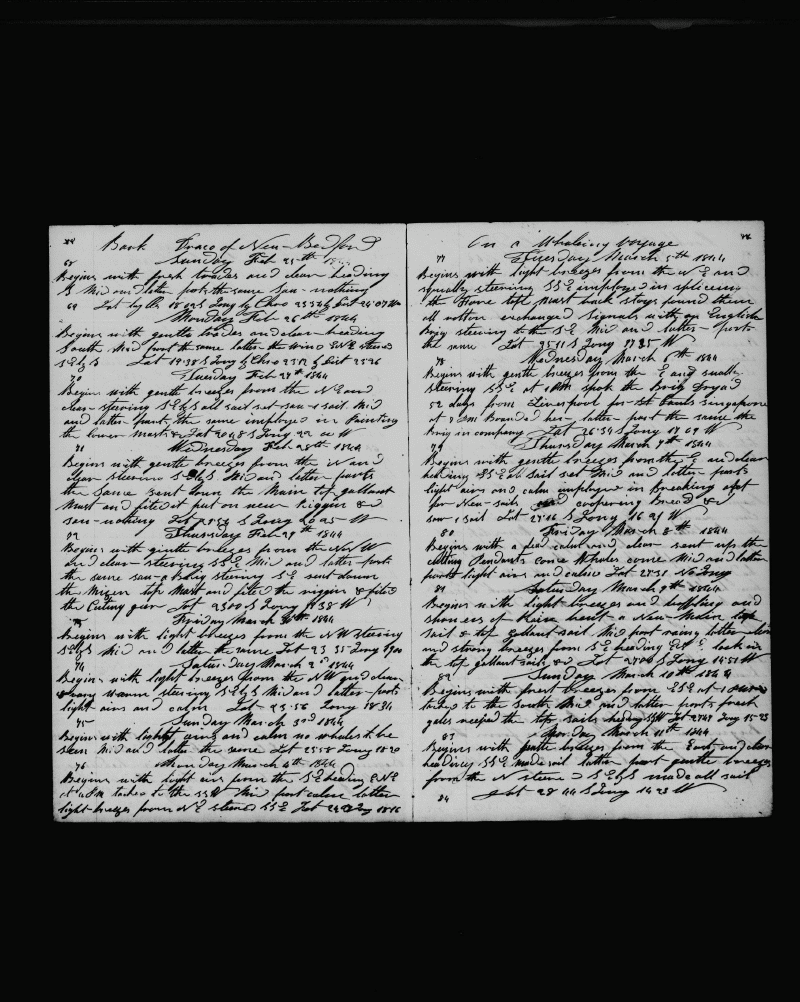 Bark Draco of New-Bedford
Sunday Feb 25th 1844
68
Begins with fresh trades and clear heading
S Mid and latter part the same saw nothing
69 Lat by
Monday Feb 26th 1844
Begins with gentle trades and clear heading
South Mid part the same latter the wind ENE steered
SEbS Lat 19.38 S Long by Chro
70 Tuesday Feb 27th 1844
Begins with gentle breezes from the NE and
clear steering SEbS all sail set saw 1 sail Mid
and latter part the same employed in Painting
the lower masts & Lat 20.48 S Long
71 Wednesday Feb 28th 1844
Begins with gentle breezes from the N and
clear steering Mid and latter parts
the same sent down the Main top gallant
Mast and fited it put on new riggin &c
saw nothing Lat S Long W
72 Thursday Feb 29th 1844
Begins with gentle breezes from the NW
and clear steering SSE Mid and latter part
the same saw a brig steering SE sent down
the Mizen top Mast and fited the riggin & fited
the Cuting gear Lat 2300 S Long W
73 Friday March 1st 1844
Begins with light breezes from the NW steering
SEbS Mid and latter the same Lat 23 35 Long
74 Saturday March 2d 1844
Begins with light breezes from the NW and clear
warm steering SEbS Mid and latter parts
light airs and calm Lat 25.56 Long 18 34
75 Sunday March 3rd 1844
Begins with light airs and calm no whales to be
seen Mid and latter the same Lat 25.58 Long 18.20
76 Monday March 4th 1844
Begins with light airs from the SE heading ENE
at 4 PM tacked to the SSW Mid part calm latter
light breezes from NE steered SSE Lat Long 18.16
On a Whaleing Voyage
77 Tuesday March 5th 1844
Begins with light breezes from the NE and
squally steering SSE employed in spliceing
the fore topt Mast back stays found them
all rotten exchanged Signals with an English
Brig steering to the SE Mid and latter part
the same Lat 25.41 S Long 17 35 W
78 Wednesday March 6th 1844
Begins with gentle breezes from the E and smooth
steering SSE at spok the Brig
52 days from Liverpool for St Pauls Singapore
at 7 PM Boarded her latter part the same the
Brig in company Lat 26.34 S Long 17 09 W
79 Thursday March 7th 1844
Begins with gentle breezes from the E and clear
heading SSE all sail set Mid and latter parts
light airs and calm employed in Breaking out
for New sails and coopering Bread &c
saw 1 sail Lat 27.16 S Long 16 29 W
80 Friday March 8th 1844
Begins with a flat calm and clear sent up the
cutting Pendants come Whales come Mid and latter
parts light airs and calm Lat 27.31 No Long
81 Saturday March 9th 1844
Begins with light breezes and baffling and
showers of Rain bent a New Main top
sail & top gallant sail Mid part rainy latter clear
and strong breezes from SE heading took in
the top gallant sails &c Lat 2700 S Long 14.51 W
82 Sunday March 10th 1844
Begins with fresh breezes from ESE at 1
tacked to the south Mid and latter parts fresh
gales reefed the top sails heading SSW Lat 27.49 Long 15.23
83 Monday March 11th 1844
Begins with gentle breezes from the East and clear
heading SSE made sail latter part gentle breezes
from the N steered SEbS made all sail
84 Lat 28 44 S Long 14 23 W